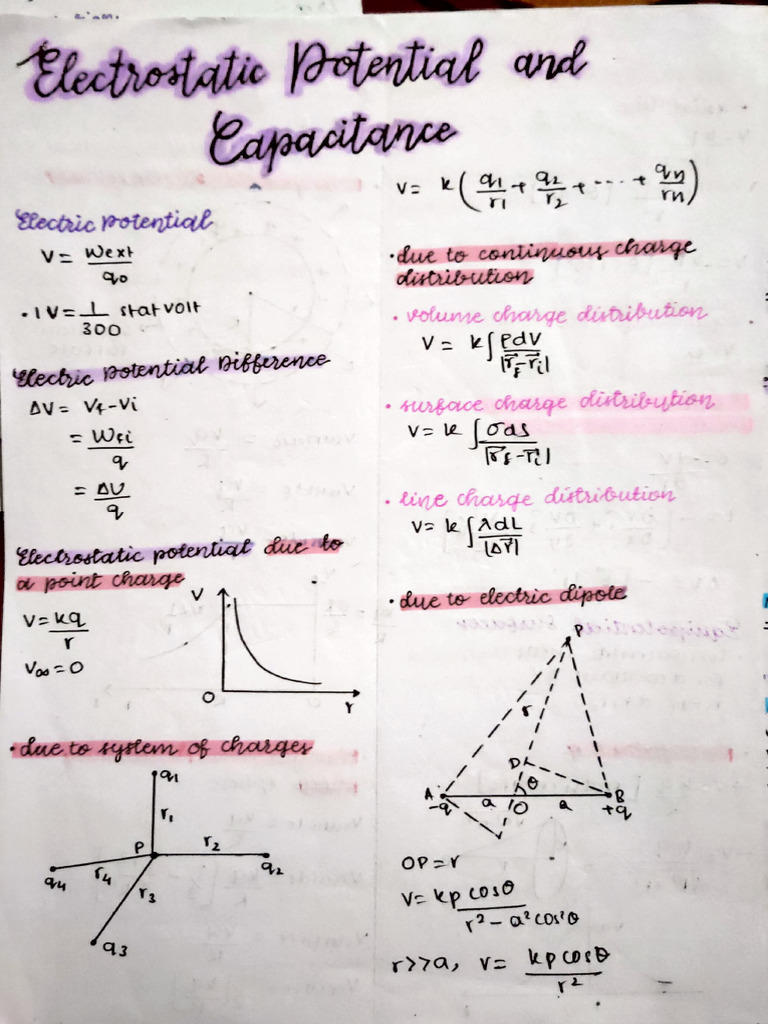 Electrostatic Potential and
Capacitance
Electric potential
V = Wext / q0
• 1V = 1/300 statvolt
Electric potential Difference
ΔV = Vf - Vi
= Wfi / q
= ΔU / q
Electrostatic potential due to
a point charge
V = kq / r
V∞ = 0
V
O
r
• due to system of charges
q1
r1
P
r2
q2
q4
r4
r3
q3
V = k(q1/r1 + q2/r2 + ---- + qn/rn)
• due to continuous charge
distribution
• volume charge distribution
V = k∫ ρdV / |r⃗f - r⃗i|
• surface charge distribution
V = k∫ σds / |r⃗f - r⃗i|
• line charge distribution
V = k∫ λdL / |Δr⃗|
• due to electric dipole
P
r
D
θ
A
-q
a
O
a
B
+q
OP = r
V = kp cosθ / r² - a²cos²θ
r>>a, V = kp cosθ / r²